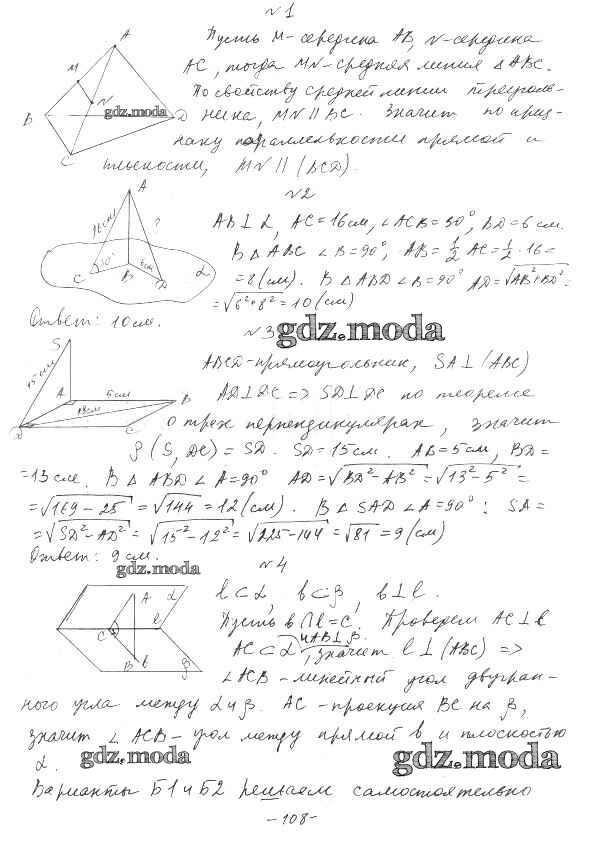 №1
Пусть M-середина AB, N-середина
AC, тогда MN-средняя линия △ABC.
По свойству средней линии треуголь-
ника, MN ∥ BC. Значит по приз-
наку параллельности прямой и
плоскости, MN ∥ (BCD).
A
M
N
B
D
C
gdz.moda
№2
AB⊥α, AC=16см, ∠ACB=30°, BD=6 см.
В △ABC ∠B=90°, AB=½ AC=½·16=
=8(см). В △ABD ∠B=90° AD=√AB²+BD²=
=√6²+8²=10(см)
Ответ: 10см.
A
16см
?
30°
C
B
6см
D
α
№3
gdz.moda
ABCD-прямоугольник, SA⊥(ABC)
AD⊥DC => SD⊥DC по теореме
о трех перпендикулярах, значит
ρ(S, DC) = SD. SD=15см. AB=5см, BD=
=13см. В △ABD ∠A=90° AD=√BD²-AB²=√13²-5²=
=√169-25=√144=12(см). В △SAD ∠A=90°: SA=
=√SD²-AD²=√15²-12²=√225-144=√81=9(см)
Ответ: 9см.
S
15см
A
B
D
C
gdz.moda
№4
l⊂α, b⊂β, b⊥l.
Пусть b∩l=C. Проведем AC⊥l
AC⊂α и AB⊥β, значит l⊥(ABC) =>
∠ACB-линейный угол двугран-
ного угла между α и β. AC-проекция BC на β,
значит ∠ACB-угол между прямой b и плоскостью
α.
A
α
l
C
B
b
β
gdz.moda
gdz.moda
Варианты Б1 и Б2 решаем самостоятельно
-108-